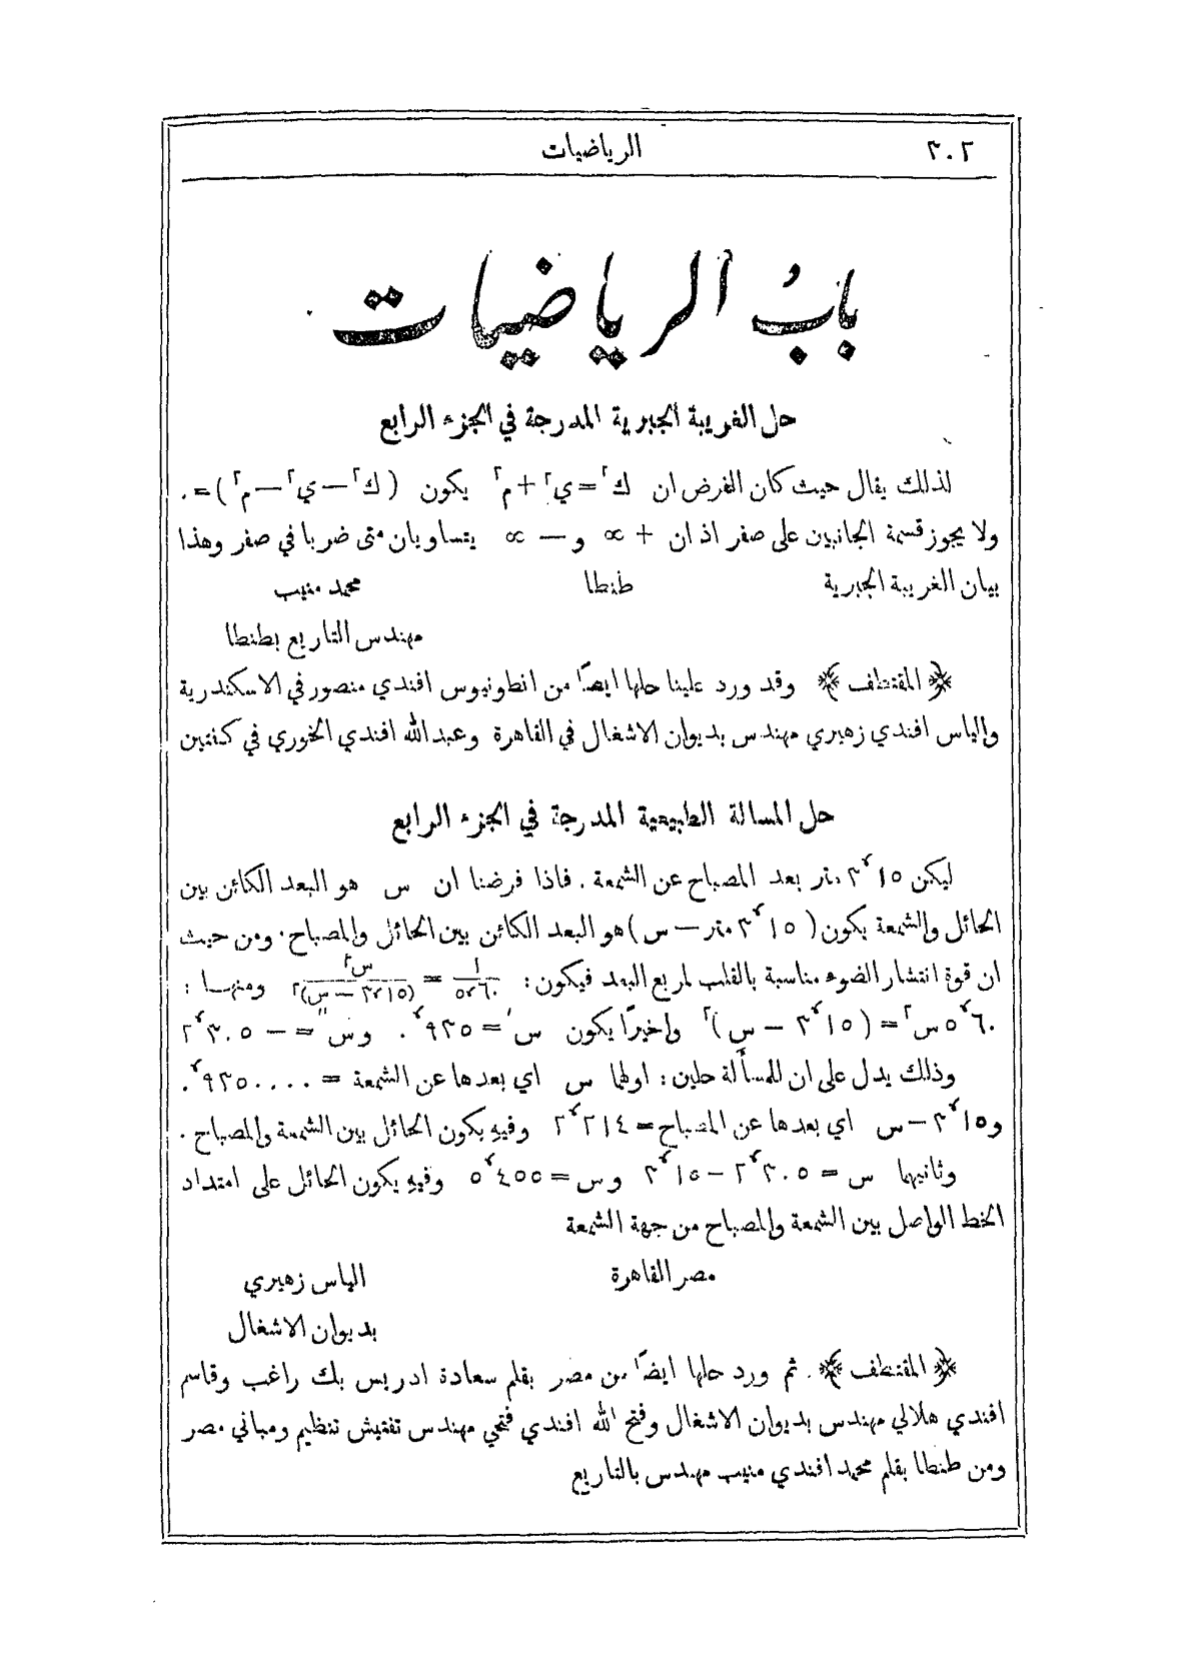 ٣٠٢
الرياضيات
باب الرياضيات
حل الغريبة الجبرية المدرجة في الجزء الرابع
لذلك يقال حيث كان الفرض ان ك٢=ي٢+م٢ يكون (ك٢—ي٢—م٢)=٠
ولا يجوز قسمة الجانبين على صفر اذ ان + ∝ و— ∝ يتساويان متى ضربا في صفر وهذا
بيان الغريبة الجبرية طنطا محمد منيب
مهندس التاريع بطنطا
﴿ المقتطف ﴾ وقد ورد علينا حلها ايضًا من انطونيوس افندي منصور في الاسكندرية
والياس افندي زهيري مهندس بديوان الاشغال في القاهرة وعبد الله افندي الخوري في كفتين
حل المسالة الطبيعية المدرجة في الجزء الرابع
ليكن ٣٫١٥ متر بعد المصباح عن الشمعة . فاذا فرضنا ان س هو البعد الكائن بين
الحائل والشمعة يكون (٣٫١٥ متر — س) هو البعد الكائن بين الحائل والمصباح . ومن حيث
ان قوة انتشار الضوء مناسبة بالقلب لمربع البعد فيكون : ١/٥٫٦٠ = س٢/(٣٫١٥ — س)٢ ومنها :
٥٫٦٠ س٢ = (٣٫١٥ — س)٢ واخيرًا يكون س' = ٠٫٩٣٥ وس" = — ٢٫٣٠٥
وذلك يدل على ان للمسألة حلين : اولهما س اي بعدها عن الشمعة = ٠٫٩٣٥٠٠٠٠
و٣٫١٥—س اي بعدها عن المصباح = ٢٫٢١٤ وفيه يكون الحائل بين الشمعة والمصباح .
وثانيها س = ٢٫٣٠٥ — ٣٫١٥ وس = ٥٫٤٥٥ وفيه يكون الحائل على امتداد
الخط الواصل بين الشمعة والمصباح من جهة الشمعة
مصر القاهرة الياس زهيري
بديوان الاشغال
﴿ المقتطف ﴾ . ثم ورد حلها ايضًا من مصر بقلم سعادة ادريس بك راغب وقاسم
افندي هلالي مهندس بديوان الاشغال وفتح الله افندي فتحي مهندس تفتيش تنظيم ومباني مصر
ومن طنطا بقلم محمد افندي منيب مهندس بالتاريع